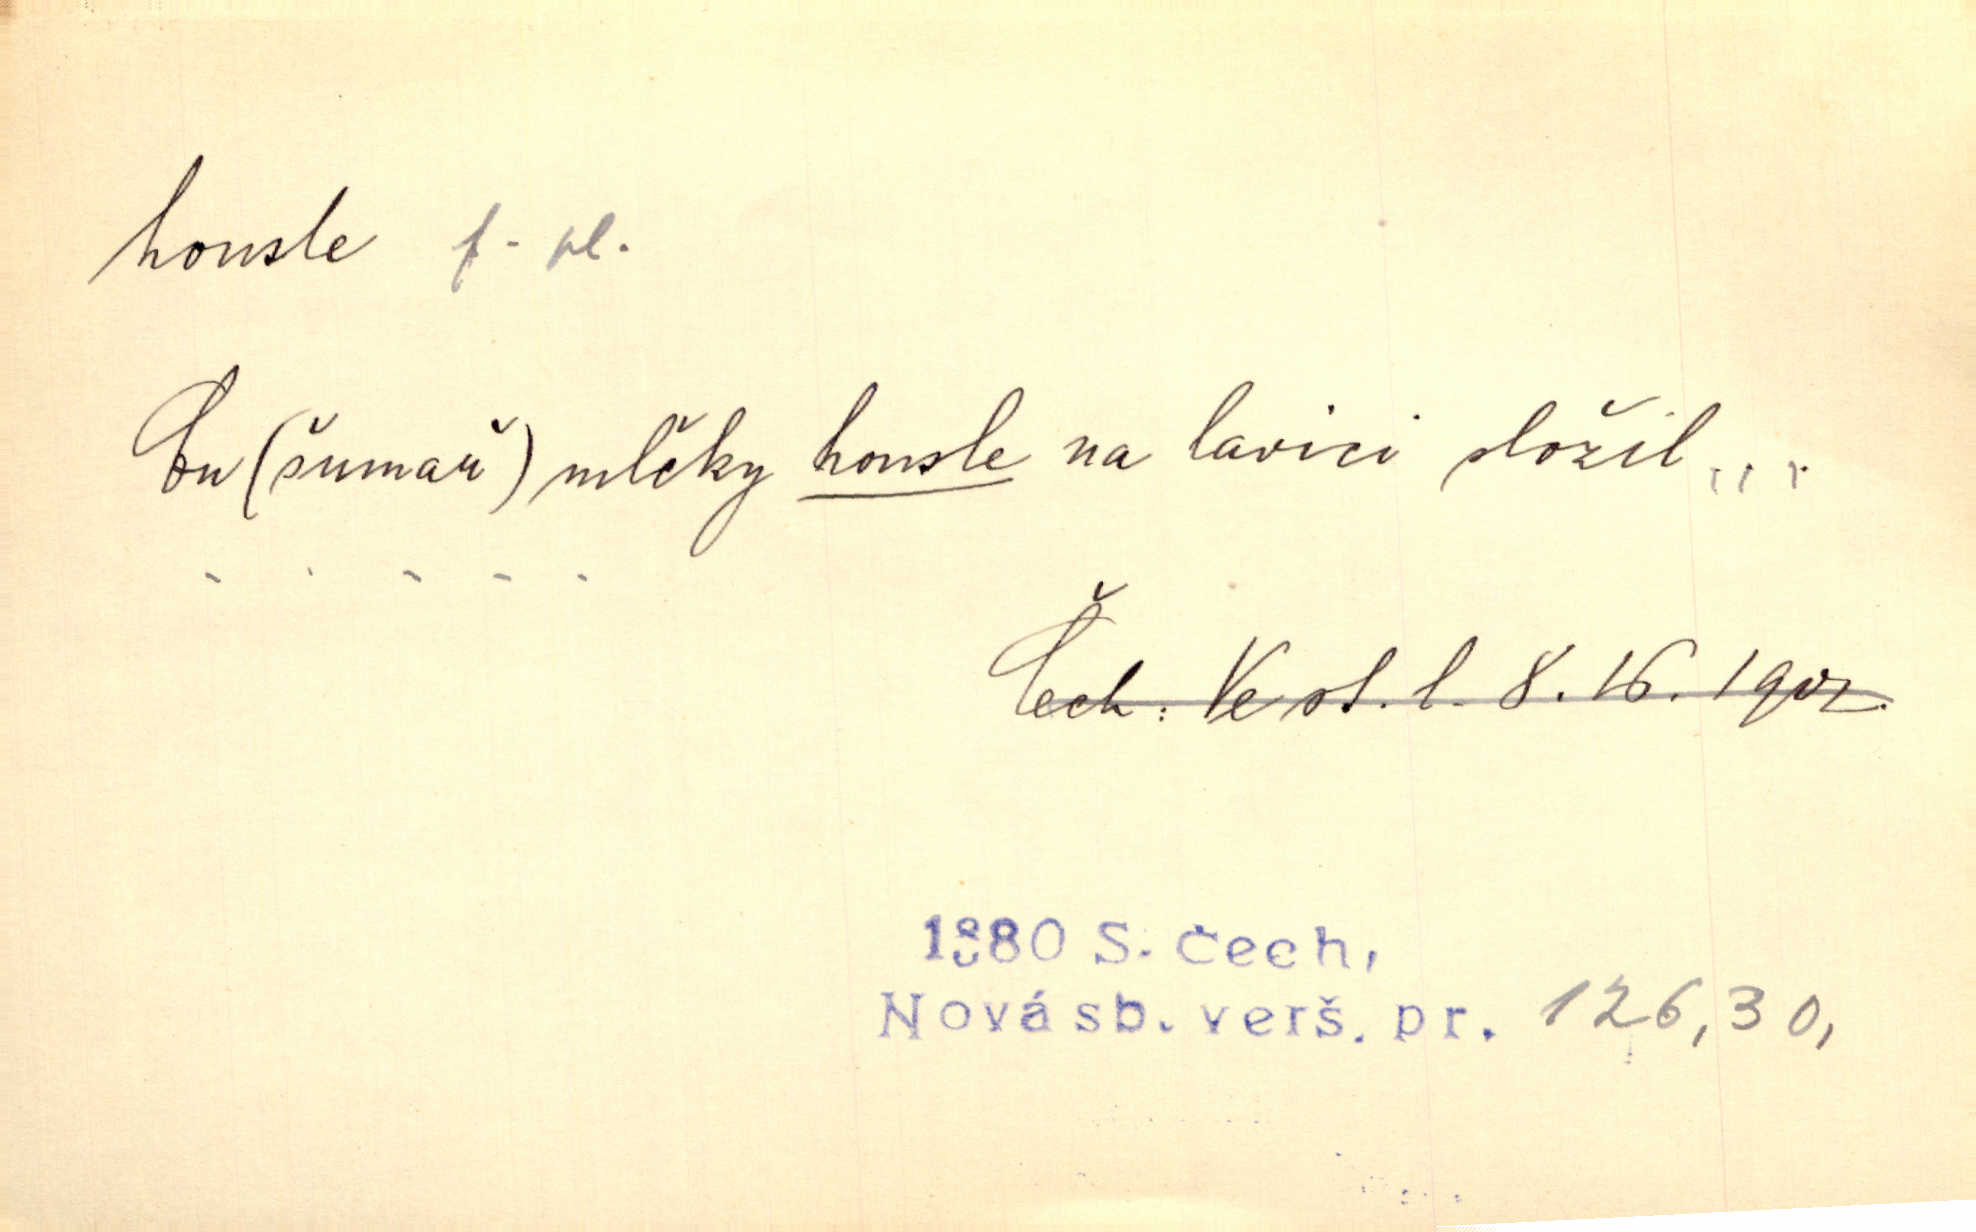 housle f. pl.
On (šumař) mlčky housle na lavici složil...
Čech: Ve st. l. 8. 16. 1902.
1880 S. Čech,
Nová sb. verš. pr. 126,30,